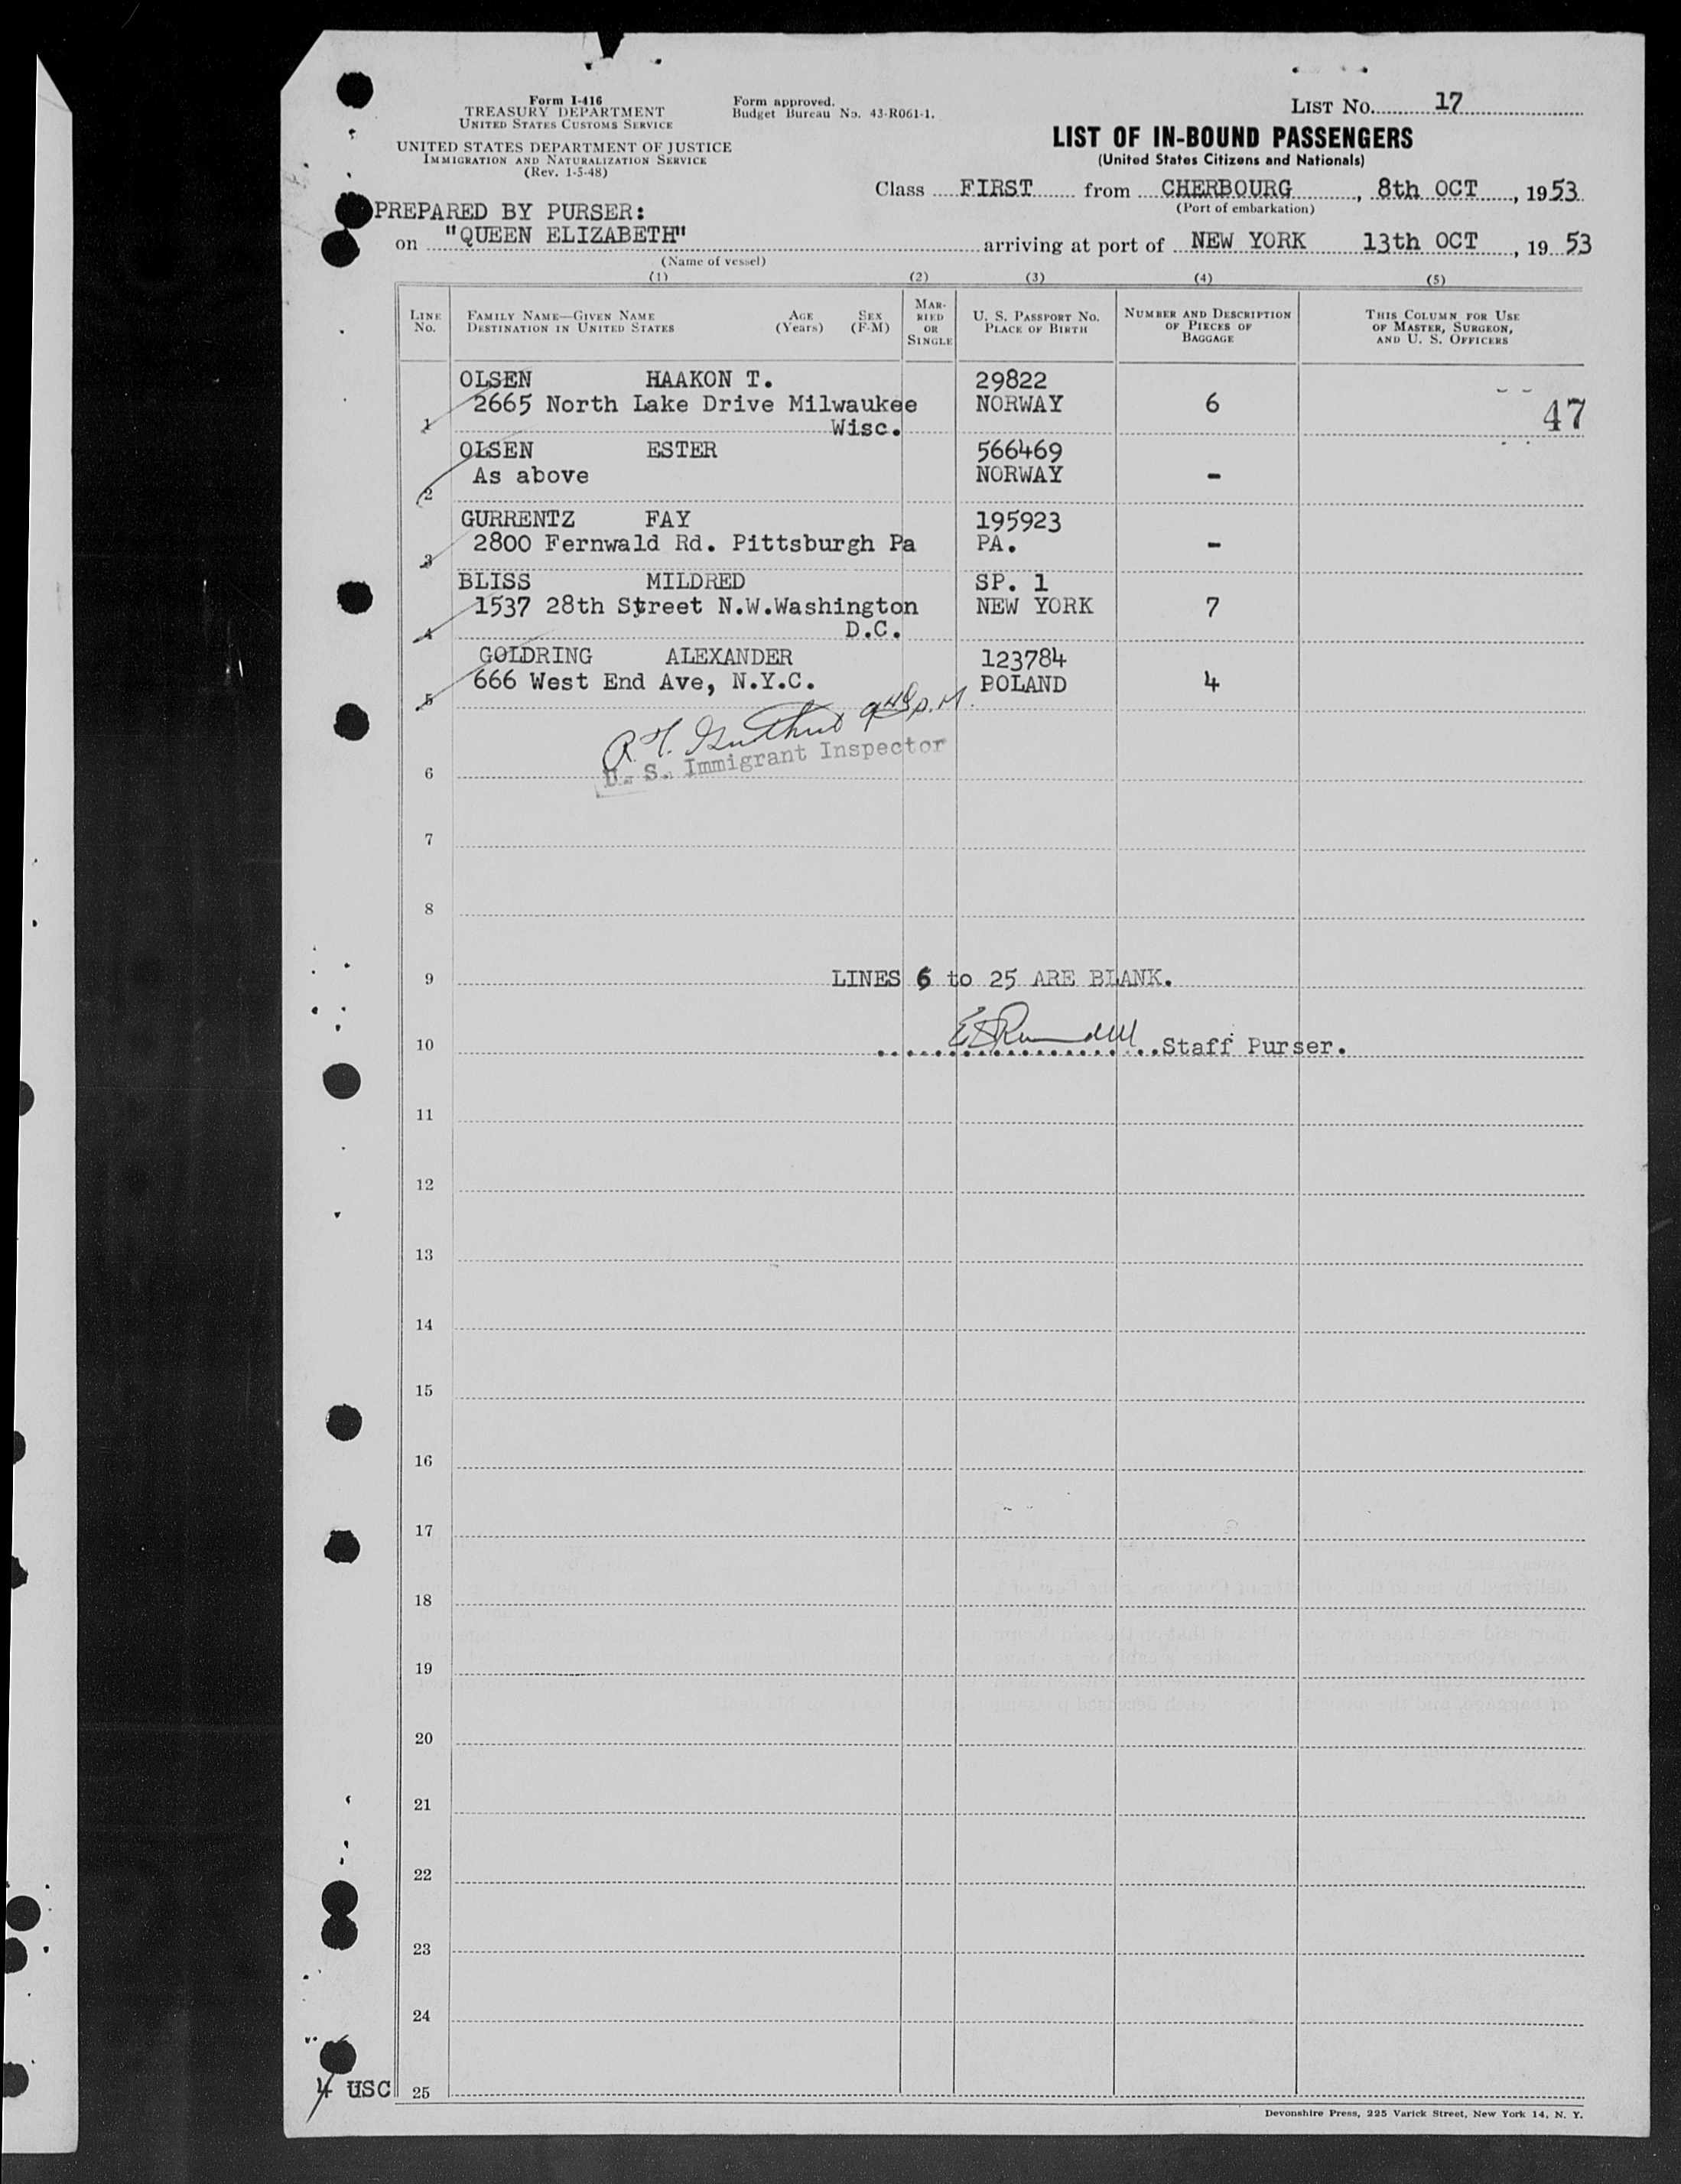 Form I-416
TREASURY DEPARTMENT
UNITED STATES CUSTOMS SERVICE
UNITED STATES DEPARTMENT OF JUSTICE
IMMIGRATION AND NATURALIZATION SERVICE
(Rev. 1-5-48)
Form approved.
Budget Bureau No. 43-R061-1.
LIST NO. 17
LIST OF IN-BOUND PASSENGERS
(United States Citizens and Nationals)
Class FIRST from CHERBOURG, 8th OCT, 1953
(Port of embarkation)
PREPARED BY PURSER:
on "QUEEN ELIZABETH" arriving at port of NEW YORK 13th OCT, 1953
(Name of vessel)
(1) (2) (3) (4) (5)
LINE NO. FAMILY NAME—GIVEN NAME DESTINATION IN UNITED STATES AGE (Years) SEX (F-M) MARRIED OR SINGLE U. S. PASSPORT NO. PLACE OF BIRTH NUMBER AND DESCRIPTION OF PIECES OF BAGGAGE THIS COLUMN FOR USE OF MASTER, SURGEON, AND U. S. OFFICERS
OLSEN HAAKON T. 29822
2665 North Lake Drive Milwaukee NORWAY 6 47
1 Wisc.
OLSEN ESTER 566469
As above NORWAY -
2
GURRENTZ FAY 195923
2800 Fernwald Rd. Pittsburgh Pa PA. -
3
BLISS MILDRED SP. 1
1537 28th Street N.W.Washington NEW YORK 7
4 D.C.
GOLDRING ALEXANDER 123784
666 West End Ave, N.Y.C. POLAND 4
5
P.M.
U. S. Immigrant Inspector
6
7
8
9 LINES 6 to 25 ARE BLANK.
10 Staff Purser.
11
12
13
14
15
16
17
18
19
20
21
22
23
24
4 USC 25
Devonshire Press, 225 Varick Street, New York 14, N. Y.